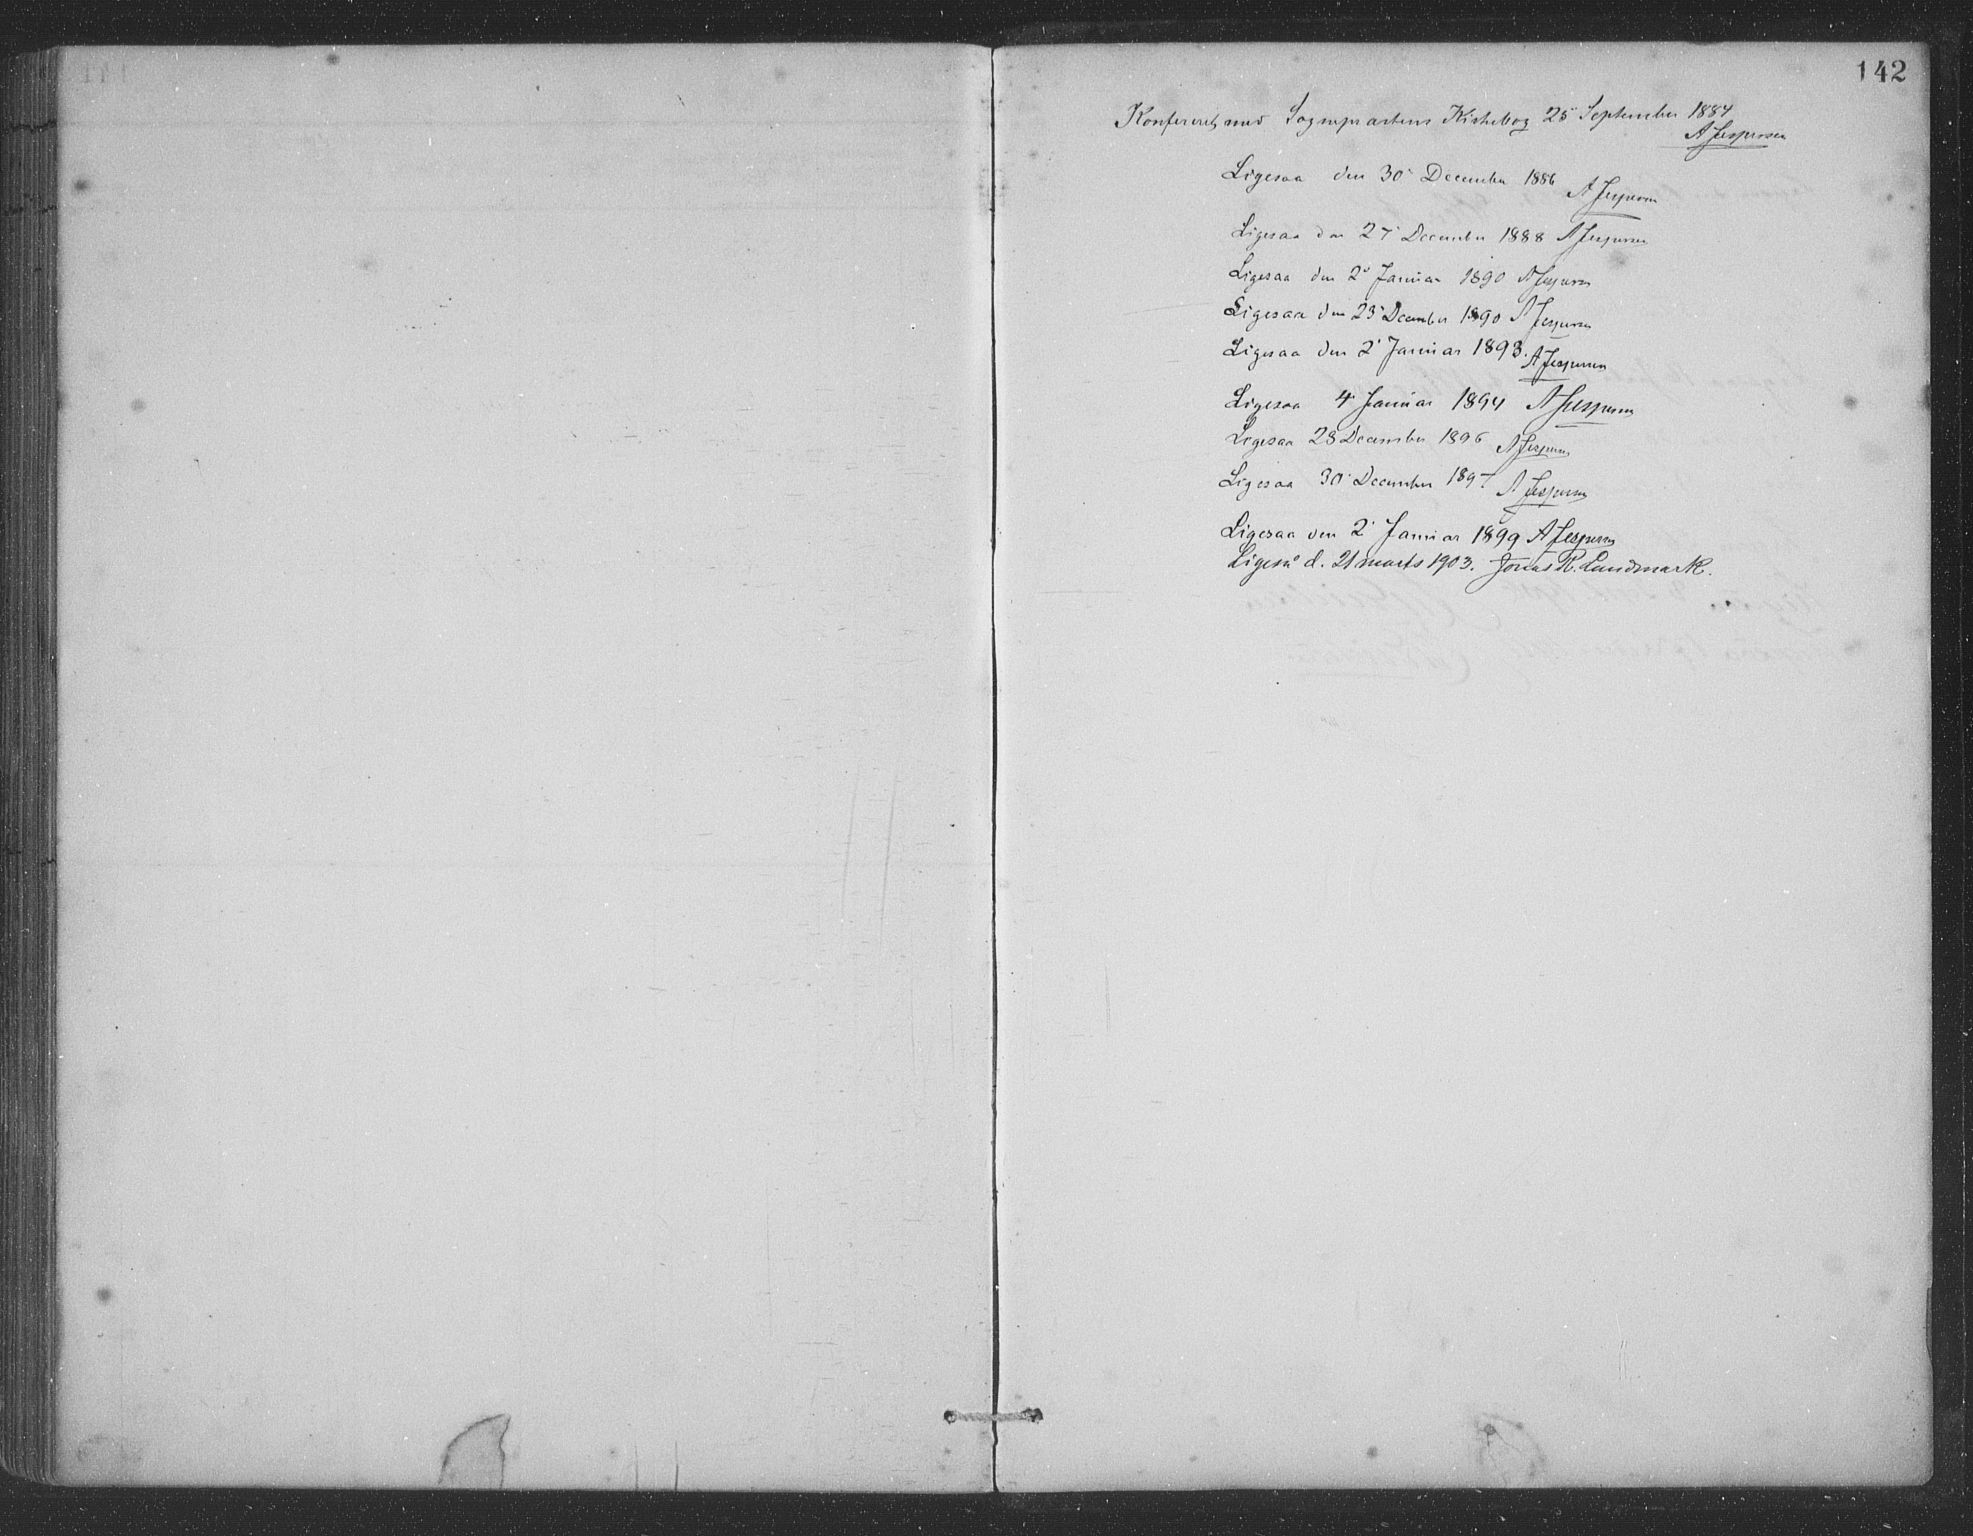 142
Konfereret med Sognepræstens Kirkebog 25' September 1884
A Jespersen
Ligesaa den 30' December 1886
A Jespersen
Ligesaa den 27' December 1888 A Jespersen
Ligesaa den 2' Januar 1890 A Jespersen
Ligesaa den 23' December 1890 A Jespersen
Ligesaa den 2' Januar 1893. A Jespersen
Ligesaa 4' Januar 1894 A Jespersen
Ligesaa 28 December 1896 A Jespersen
Ligesaa 30' December 1897 A Jespersen
Ligesaa den 2' Januar 1899 A Jespersen
Ligeså d. 21 marts 1903. Jonas R. Lundmark.